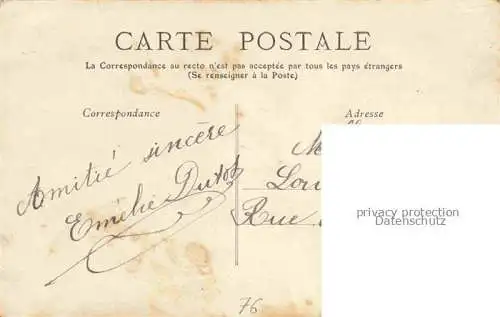 CARTE POSTALE
La Correspondance au recto n'est pas acceptée par tous les pays étrangers
(Se renseigner à la Poste)
Correspondance
Adresse
Amitié sincère
Emilie Dutot
M
Lou
Rue
privacy protection
Datenschutz
76